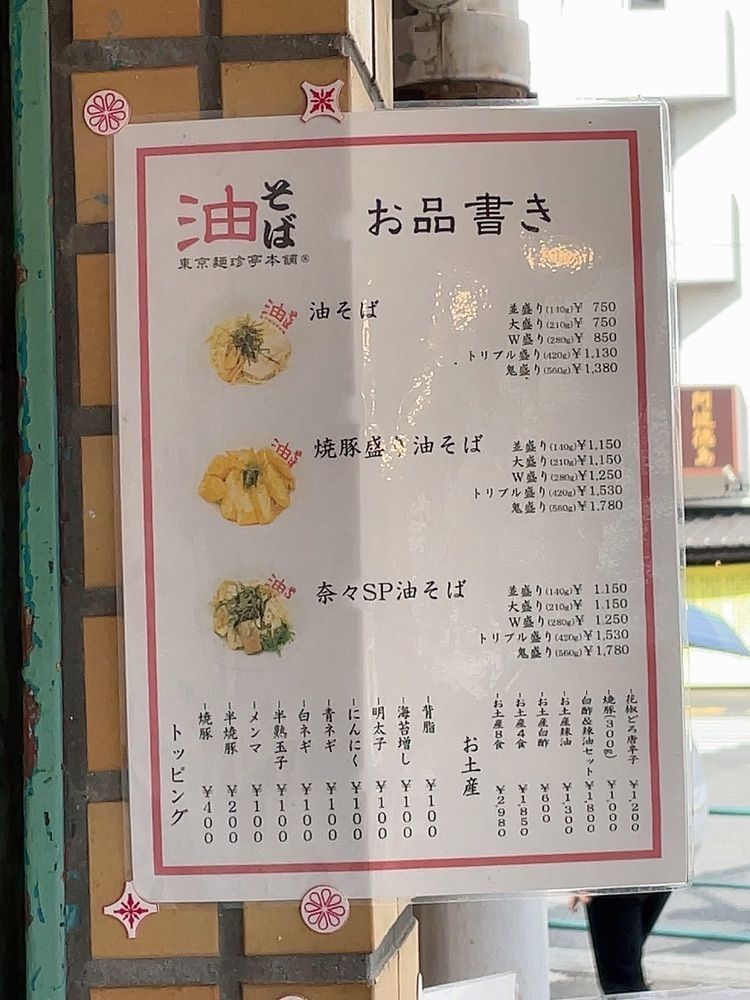 油そば
東京麺珍亭本舗®
お品書き
油そば
並盛り(140g)¥ 750
大盛り(210g)¥ 750
W盛り(280g)¥ 850
トリプル盛り(420g)¥1,130
鬼盛り(560g)¥1,380
焼豚盛り油そば
並盛り(140g)¥1,150
大盛り(210g)¥1,150
W盛り(280g)¥1,250
トリプル盛り(420g)¥1,530
鬼盛り(560g)¥1,780
奈々SP油そば
並盛り(140g)¥ 1.150
大盛り(210g)¥ 1.150
W盛り(280g)¥ 1.250
トリプル盛り(420g)¥1,530
鬼盛り(560g)¥1,780
トッピング
-焼豚 ¥400
-半焼豚 ¥200
-メンマ ¥100
-半熟玉子 ¥100
-白ネギ ¥100
-青ネギ ¥100
-にんにく ¥100
-明太子 ¥100
-海苔増し ¥100
-背脂 ¥100
お土産
-お土産8食 ¥2,980
-お土産4食 ¥1,850
-お土産白酢 ¥600
-お土産辣油 ¥1,300
-白酢&辣油セット ¥1,800
-焼豚(300g) ¥1,000
-花椒どろ唐辛子 ¥1,200